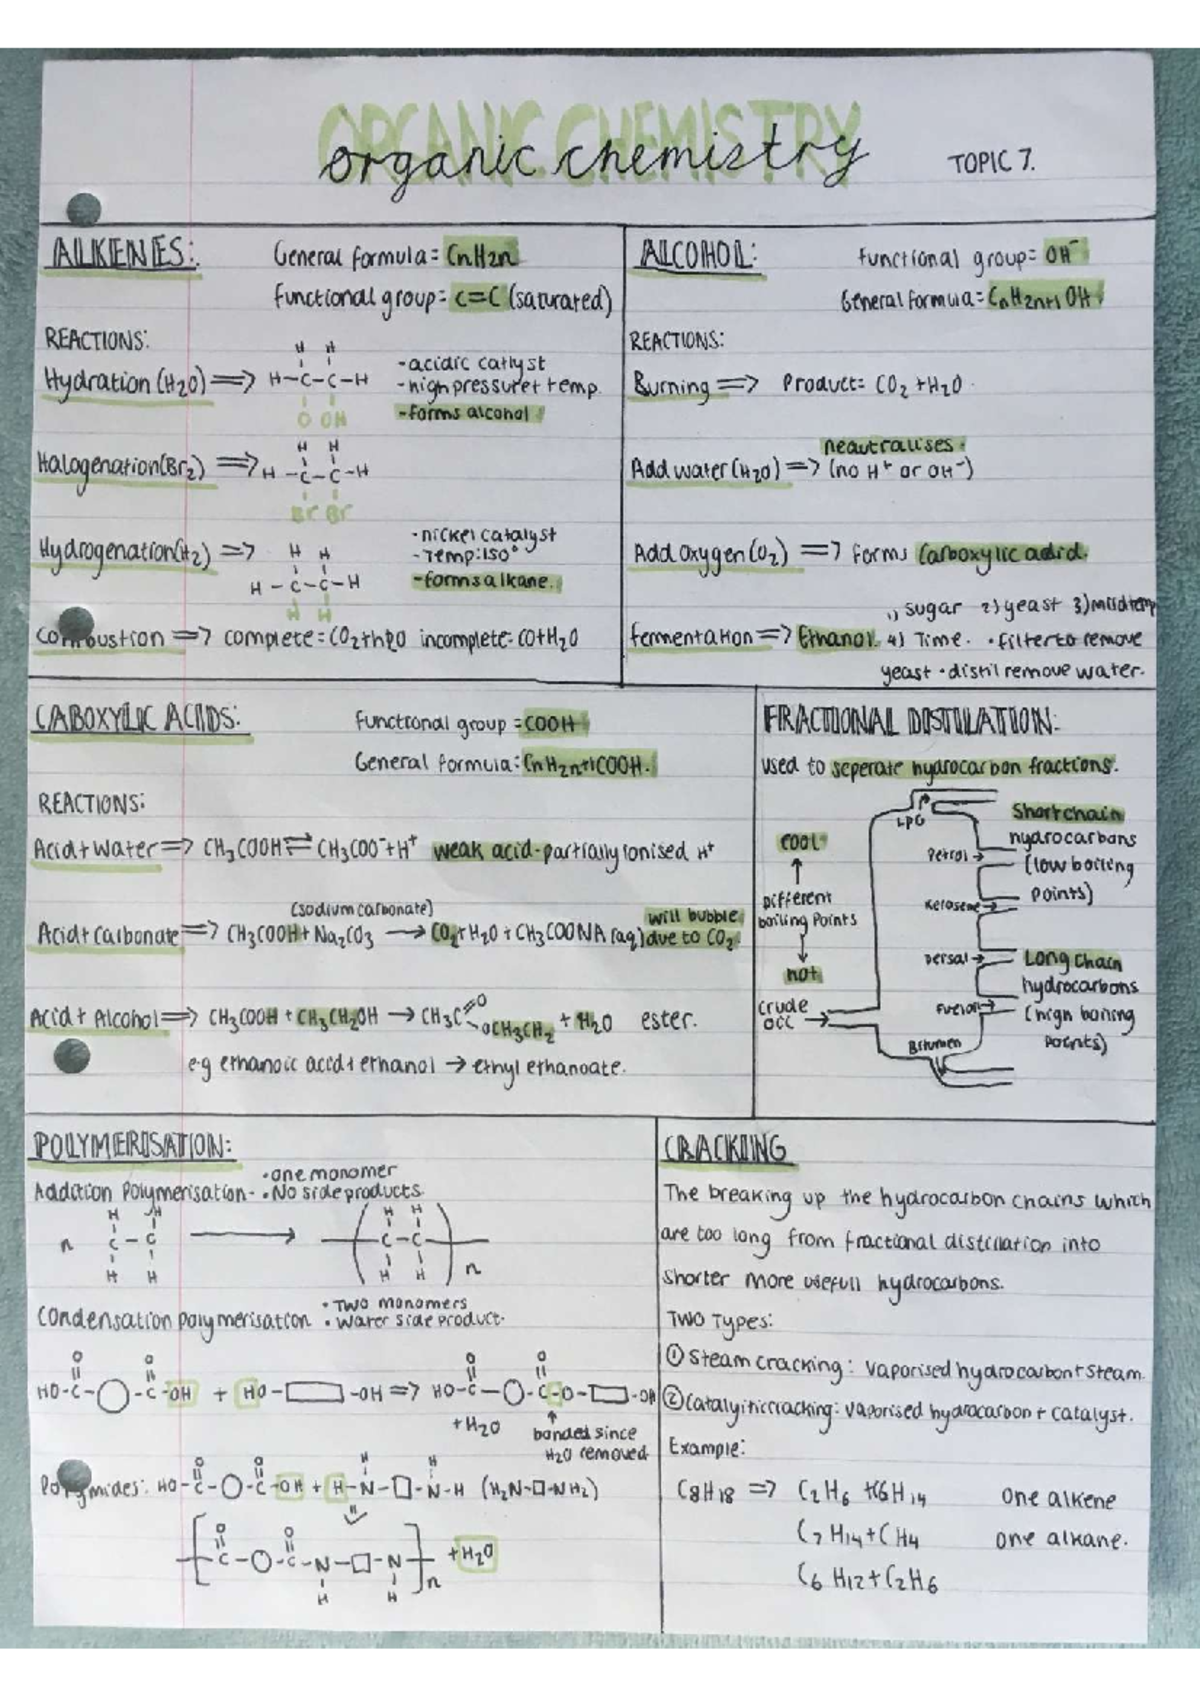 ORGANIC CHEMISTRY
organic chemistry
TOPIC 7.
ALKENES:
General formula = CnH2n
functional group = C=C (saturated)
REACTIONS:
Hydration (H2O) => H-C-C-H
H H
O OH
-acidic catlyst
-high pressure + temp.
-forms alcohol
Halogenation (Br2) => H-C-C-H
H H
Br Br
Hydrogenation (H2) => H-C-C-H
H H
H H
-nickel catalyst
-Temp: 150°
-forms alkane.
Combustion => complete = CO2+H2O incomplete = CO+H2O
ALCOHOL:
functional group = OH⁻
General formula = CnH2n+1 OH
REACTIONS:
Burning => Product = CO2 + H2O
neautralises.
Add water (H2O) => (no H+ or OH-)
Add oxygen (O2) => forms Carboxylic acid.
1) sugar 2) yeast 3) mild temp
fermentation => Ethanol 4) Time. • filter to remove
yeast • distil remove water.
CABOXYLIC ACIDS:
functional group = COOH
General formula: CnH2n+1COOH.
REACTIONS:
Acid + water => CH3COOH ⇌ CH3COO⁻ + H+ weak acid - partially ionised H+
(sodium carbonate)
Acid + carbonate => CH3COOH + Na2CO3 → CO2 + H2O + CH3COONA (aq)
will bubble
due to CO2
Acid + Alcohol => CH3COOH + CH3CH2OH → CH3C=O OCH3CH2 + H2O ester.
e.g ethanoic acid + ethanol → ethyl ethanoate.
FRACTIONAL DISTILATION:
used to seperate hydrocarbon fractions.
cool
different
boiling Points
hot
crude
LPG
Petrol →
Kerosene →
→
→
Bitumen
Short chain
hydrocarbons
(low boiling
points)
Long chain
hydrocarbons
(high boiling
points)
POLYMERISATION:
Addition Polymerisation-
• one monomer
• No side products
H H
n C-C
H H
H H
-C-C-
H H
n
Condensation polymerisation
• Two monomers
• water side product.
O O
HO-C- -C-OH + HO- -OH => HO-C- -C-O- -OH
O O
+ H2O
bonded since
H2O removed
Polymides: HO-C- -C-OH + H-N- -N-H (H2N-□-NH2)
O O H H
O O
-C- -C-N- -N-
H H
n
+ H2O
CRACKING
The breaking up the hydrocarbon chains which
are too long from fractional distillation into
shorter more usefull hydrocarbons.
Two Types:
① Steam cracking: vaporised hydrocarbon + steam.
② Catalyitic cracking: vaporised hydrocarbon + catalyst.
Example:
C8H18 => C2H6 + C6H14 one alkene
C7H14 + CH4 one alkane.
C6H12 + C2H6